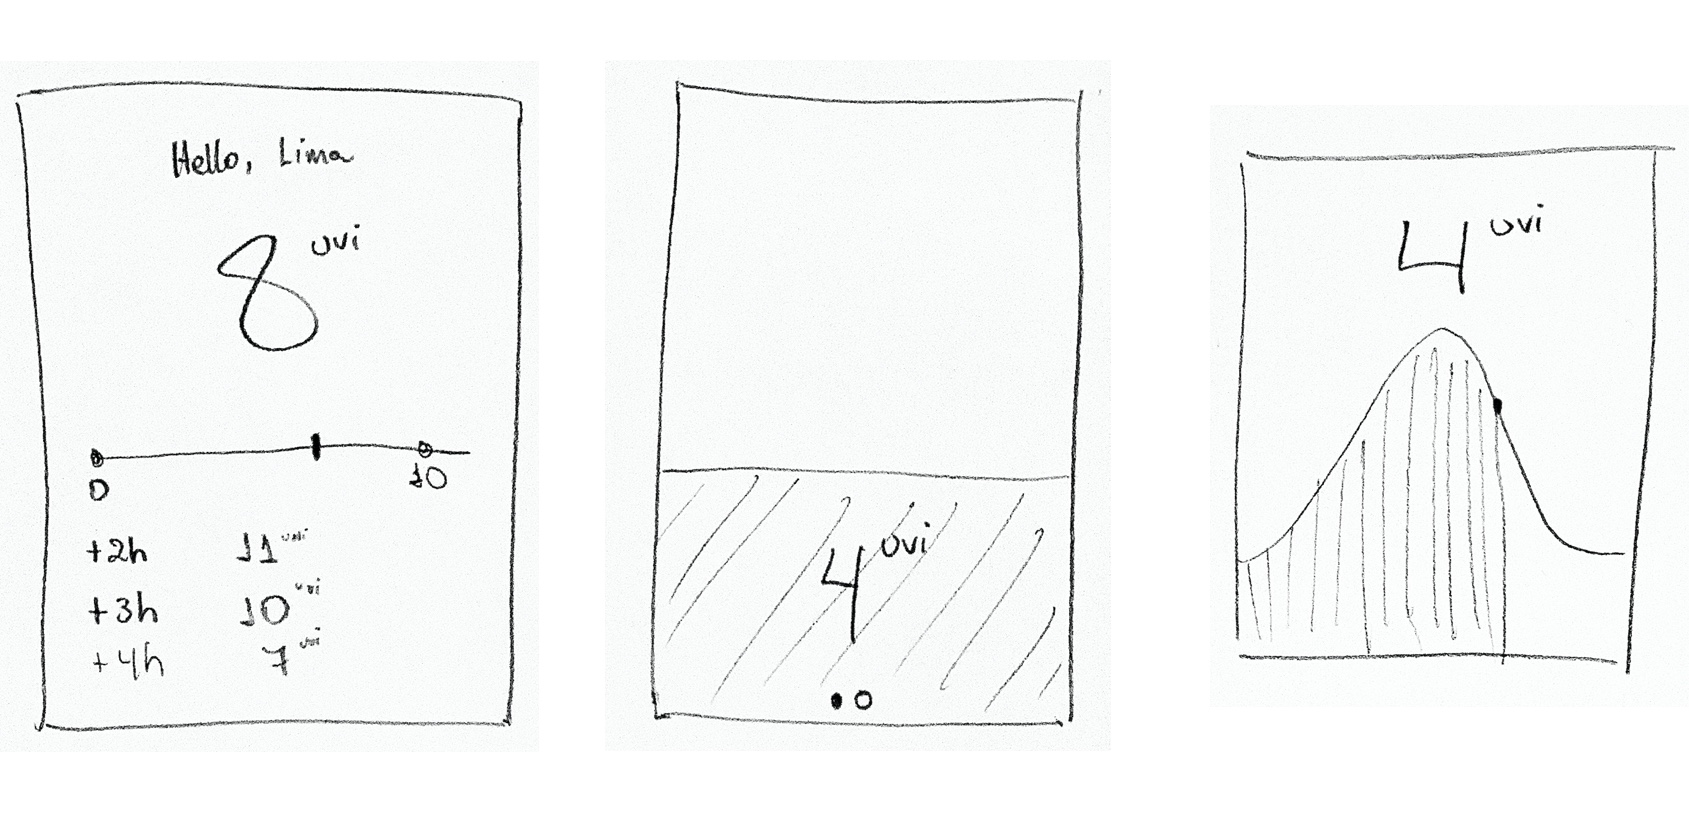 Hello, Lima
8 uvi
0 10
+2h 11 uvi
+3h 10 uvi
+4h 7 uvi
4 uvi
4 uvi